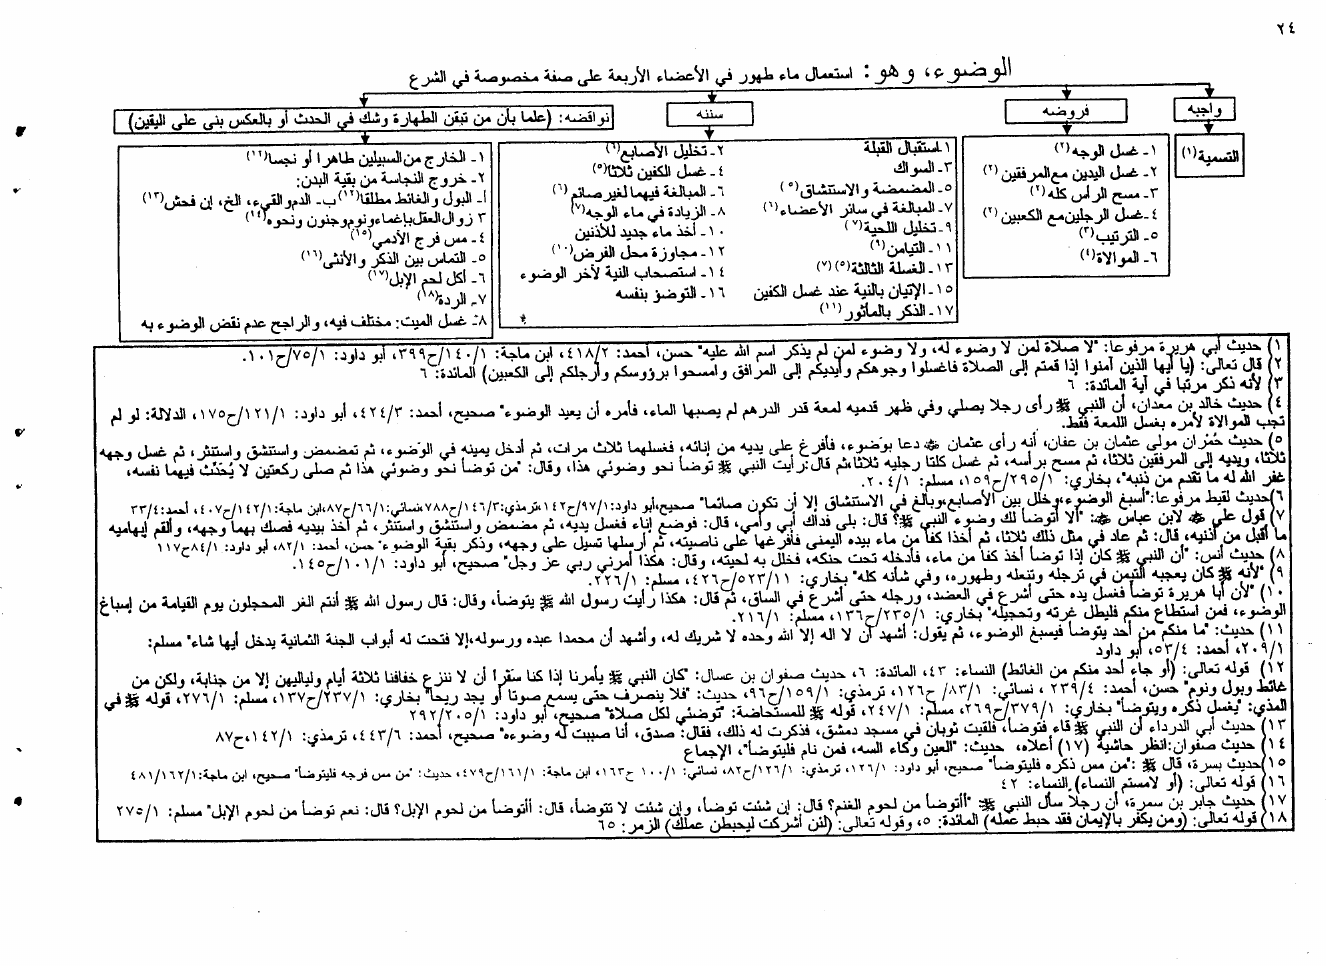 ٢٤
الوضوء، وهو: استعمال ماء طهور في الأعضاء الأربعة على صفة مخصوصة في الشرع
واجبه
التسمية(١)
فروضه
١ـ غسل الوجه(٢)
٢ـ غسل اليدين مع المرفقين(٢)
٣ـ مسح الرأس كله(٢)
٤ـ غسل الرجلين مع الكعبين(٢)
٥ـ الترتيب(٣)
٦ـ الموالاة(٤)
سننه
١ـ استقبال القبلة
٢ـ تخليل الأصابع(٦)
٣ـ السواك
٤ـ غسل الكفين ثلاثا(٥)
٥ـ المضمضة والاستنشاق(٥)
٦ـ المبالغة فيهما لغير صائم(٦)
٧ـ المبالغة في سائر الأعضاء(٦)
٨ـ الزيادة في ماء الوجه(٧)
٩ـ تخليل اللحية(٧)
١٠ـ أخذ ماء جديد للأذنين
١١ـ التيامن(٩)
١٢ـ مجاوزة محل الفرض(١٠)
١٣ـ الغسلة الثالثة(٥)(٧)
١٤ـ استصحاب النية لآخر الوضوء
١٥ـ الإتيان بالنية عند غسل الكفين
١٦ـ التوضؤ بنفسه
١٧ـ الذكر بالمأثور(١١)
نواقضه: (علما بأن من تيقن الطهارة وشك في الحدث أو بالعكس بنى على اليقين)
١ـ الخارج من السبيلين طاهرا أو نجسا(١٢)
٢ـ خروج النجاسة من بقية البدن:
أـ البول والغائط مطلقا(١٢) ب ـ الدم والقيء، الخ، إن فحش(١٣)
٣ زوال العقل بإغماء ونوم وجنون ونحوه(١٤)
٤ـ مس فرج الآدمي(١٥)
٥ـ التماس بين الذكر والأنثى(١٦)
٦ـ أكل لحم الإبل(١٧)
٧ـ الردة(١٨)
٨ـ غسل الميت: مختلف فيه، والراجح عدم نقض الوضوء به
١) حديث أبي هريرة مرفوعا: "لا صلاة لمن لا وضوء له، ولا وضوء لمن لم يذكر اسم الله عليه" حسن، أحمد: ٤١٨/٢، ابن ماجة: ١٤٠/١/ح٣٩٩، أبو داود: ٧٥/١/ح١٠١.
٢) قال تعالى: (يا أيها الذين آمنوا إذا قمتم إلى الصلاة فاغسلوا وجوهكم وأيديكم إلى المرافق وامسحوا برؤوسكم وأرجلكم إلى الكعبين) المائدة: ٦
٣) لأنه ذكر مرتبا في آية المائدة: ٦
٤) حديث خالد بن معدان، أن النبي ﷺ رأى رجلا يصلي وفي ظهر قدميه لمعة قدر الدرهم لم يصبها الماء، فأمره أن يعيد الوضوء" صحيح، أحمد: ٤٢٤/٣، أبو داود: ١٢١/١/ح١٧٥، الدلالة: لو لم
تجب الموالاة لأمره بغسل اللمعة فقط.
٥) حديث حُمْران مولى عثمان بن عفان، أنه رأى عثمان دعا بوَضوء، فأفرغ على يديه من إنائه، فغسلهما ثلاث مرات، ثم أدخل يمينه في الوَضوء، ثم تمضمض واستنشق واستنثر، ثم غسل وجهه
ثلاثا، ويديه إلى المرفقين ثلاثا، ثم مسح برأسه، ثم غسل كلتا رجليه ثلاثا، ثم قال: رأيت النبي ﷺ توضأ نحو وضوئي هذا، وقال: "من توضأ نحو وضوئي هذا ثم صلى ركعتين لا يُحَدِّث فيهما نفسه،
غفر الله له ما تقدم من ذنبه"، بخاري: ٢٩٥/١/ح١٥٩، مسلم: ٢٠٤/١.
٦) حديث لقيط مرفوعا: "أسبغ الوضوء، وخلل بين الأصابع، وبالغ في الاستنشاق إلا أن تكون صائما" صحيح، أبو داود: ٩٧/١/ح١٤٢، ترمذي: ١٤٦/٣/ح٧٨٨، نسائي: ٦٦/١/ح٨٧، ابن ماجة: ١٤٢/١/ح٤٠٧، أحمد: ٣٣/٤
٧) قول علي لابن عباس: "ألا أتوضأ لك وضوء النبي ﷺ؟ قال: بلى فداك أبي وأمي، قال: فوضع إناء فغسل يديه، ثم مضمض واستنشق واستنثر، ثم أخذ بيديه فصك بهما وجهه، وألقم إبهاميه
ما أقبل من أذنيه، قال: ثم عاد في مثل ذلك ثلاثا، ثم أخذ كفا من ماء بيده اليمنى فأفرغها على ناصيته، ثم أرسلها تسيل على وجهه، وذكر بقية الوضوء" حسن، أحمد: ٨٢/١، أبو داود: ٨٤/١/ح١١٧
٨) حديث أنس: "أن النبي ﷺ كان إذا توضأ أخذ كفا من ماء، فأدخله تحت حنكه، فخلل به لحيته، وقال: هكذا أمرني ربي عز وجل" صحيح، أبو داود: ١٠١/١/ح١٤٥.
٩) "لأنه ﷺ كان يعجبه التيمن في ترجله وتنعله وطهوره، وفي شأنه كله" بخاري: ٥٢٣/١١/ح٤٢٦، مسلم: ٢٢٦/١.
١٠) "لأن أبا هريرة توضأ فغسل يده حتى أشرع في العضد، ورجله حتى أشرع في الساق، ثم قال: هكذا رأيت رسول الله ﷺ يتوضأ، وقال: قال رسول الله ﷺ أنتم الغر المحجلون يوم القيامة من إسباغ
الوضوء، فمن استطاع منكم فليطل غرته وتحجيله" بخاري: ٢٣٥/١/ح١٣٦، مسلم: ٢١٦/١.
١١) حديث: "ما منكم من أحد يتوضأ فيسبغ الوضوء، ثم يقول: أشهد أن لا اله إلا الله وحده لا شريك له، وأشهد أن محمدا عبده ورسوله، إلا فتحت له أبواب الجنة الثمانية يدخل أيها شاء" مسلم:
٢٠٩/١، أحمد: ٥٣/٤، أبو داود
١٢) قوله تعالى: (أو جاء أحد منكم من الغائط) النساء: ٤٣، المائدة: ٦، حديث صفوان بن عسال: "كان النبي ﷺ يأمرنا إذا كنا سفْرا أن لا ننزع خفافنا ثلاثة أيام ولياليهن إلا من جنابة، ولكن من
غائط وبول ونوم" حسن، أحمد: ٢٣٩/٤، نسائي: ٨٣/١/ ح١٢٦، ترمذي: ١٥٩/١/ح٩٦، حديث: "فلا ينصرف حتى يسمع صوتا أو يجد ريحا" بخاري: ٢٣٧/١/ح١٣٧، مسلم: ٢٧٦/١، قوله ﷺ في
المذي: "يغسل ذكره ويتوضأ" بخاري: ٣٧٩/١/ح٢٦٩، مسلم: ٢٤٧/١، قوله ﷺ للمستحاضة: "توضئي لكل صلاة" صحيح، أبو داود: ٢٠٥/١/٢٩٢
١٣) حديث أبي الدرداء أن النبي ﷺ قاء فتوضأ، فلقيت ثوبان في مسجد دمشق، فذكرت له ذلك، فقال: صدق، أنا صببت له وضوءه" صحيح، أحمد: ٤٤٣/٦، ترمذي: ١٤٢/١، ح٨٧
١٤) حديث صفوان: انظر حاشية (١٧) أعلاه، حديث: "العين وكاء السه، فمن نام فليتوضأ"، الإجماع
١٥) حديث بسرة، قال ﷺ: "من مس ذكره فليتوضأ" صحيح، أبو داود: ١٢٦/١، ترمذي: ١٢٦/١/ح٨٢، نسائي: ١٠٠/١ ح١٦٣، ابن ماجة: ١٦١/١/ح٤٧٩، حديث: "من مس فرجه فليتوضأ" صحيح، ابن ماجة: ٤٨١/١٦٢/١
١٦) قوله تعالى: (أو لامستم النساء) النساء: ٤٢
١٧) حديث جابر بن سمرة، أن رجلا سأل النبي ﷺ "أأتوضأ من لحوم الغنم؟ قال: إن شئت توضأ، وإن شئت لا تتوضأ، قال: أأتوضأ من لحوم الإبل؟ قال: نعم توضأ من لحوم الإبل" مسلم: ٢٧٥/١
١٨) قوله تعالى: (ومن يكفر بالإيمان فقد حبط عمله) المائدة: ٥، وقوله تعالى: (لئن أشركت ليحبطن عملك) الزمر: ٦٥